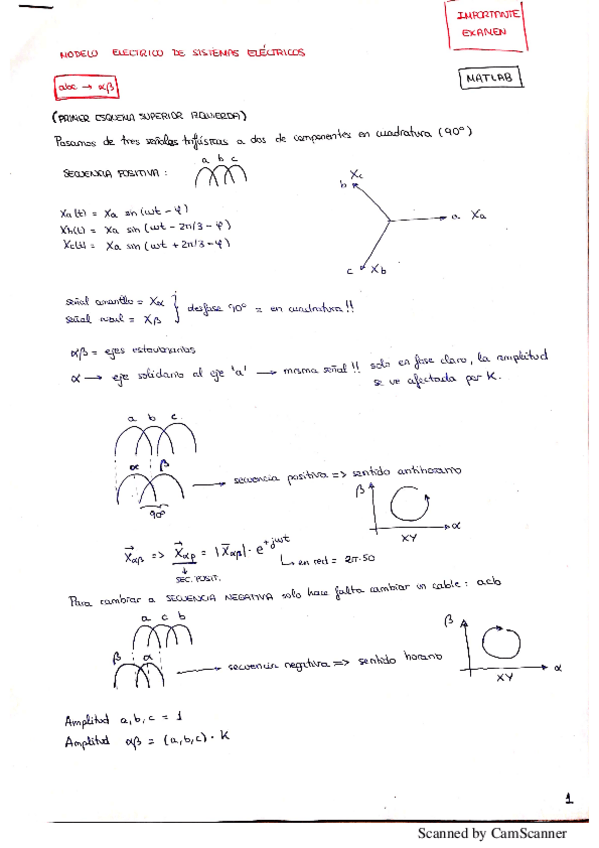 IMPORTANTE
EXAMEN
MODELO ELECTRICO DE SISTEMAS ELÉCTRICOS
MATLAB
abc → αβ
(PRIMER ESQUEMA SUPERIOR IZQUIERDA)
Pasamos de tres señales trifásicas a dos de componentes en cuadratura (90°)
SECUENCIA POSITIVA:
a b c
Xa(t) = Xa sin(ωt - φ)
Xb(t) = Xa sin(ωt - 2π/3 - φ)
Xc(t) = Xa sin(ωt + 2π/3 - φ)
Xc
b
a Xa
c Xb
señal amarillo = Xα
señal azul = Xβ
desfase 90° = en cuadratura!!
αβ = ejes estacionarios
α → eje solidario al eje 'a' → misma señal!! solo en fase claro, la amplitud
se ve afectada por K.
a b c
α β
90°
→ secuencia positiva => sentido antihorario
β
α
XY
X⃗αβ => X⃗αβ = |X̄αβ| · e^+jωt
↳ en red = 2π·50
SEC. POSIT.
Para cambiar a SECUENCIA NEGATIVA solo hace falta cambiar un cable: acb
a c b
β α
→ secuencia negativa => sentido horario
β
α
XY
Amplitud a,b,c = 1
Amplitud αβ = (a,b,c) · K
1
Scanned by CamScanner